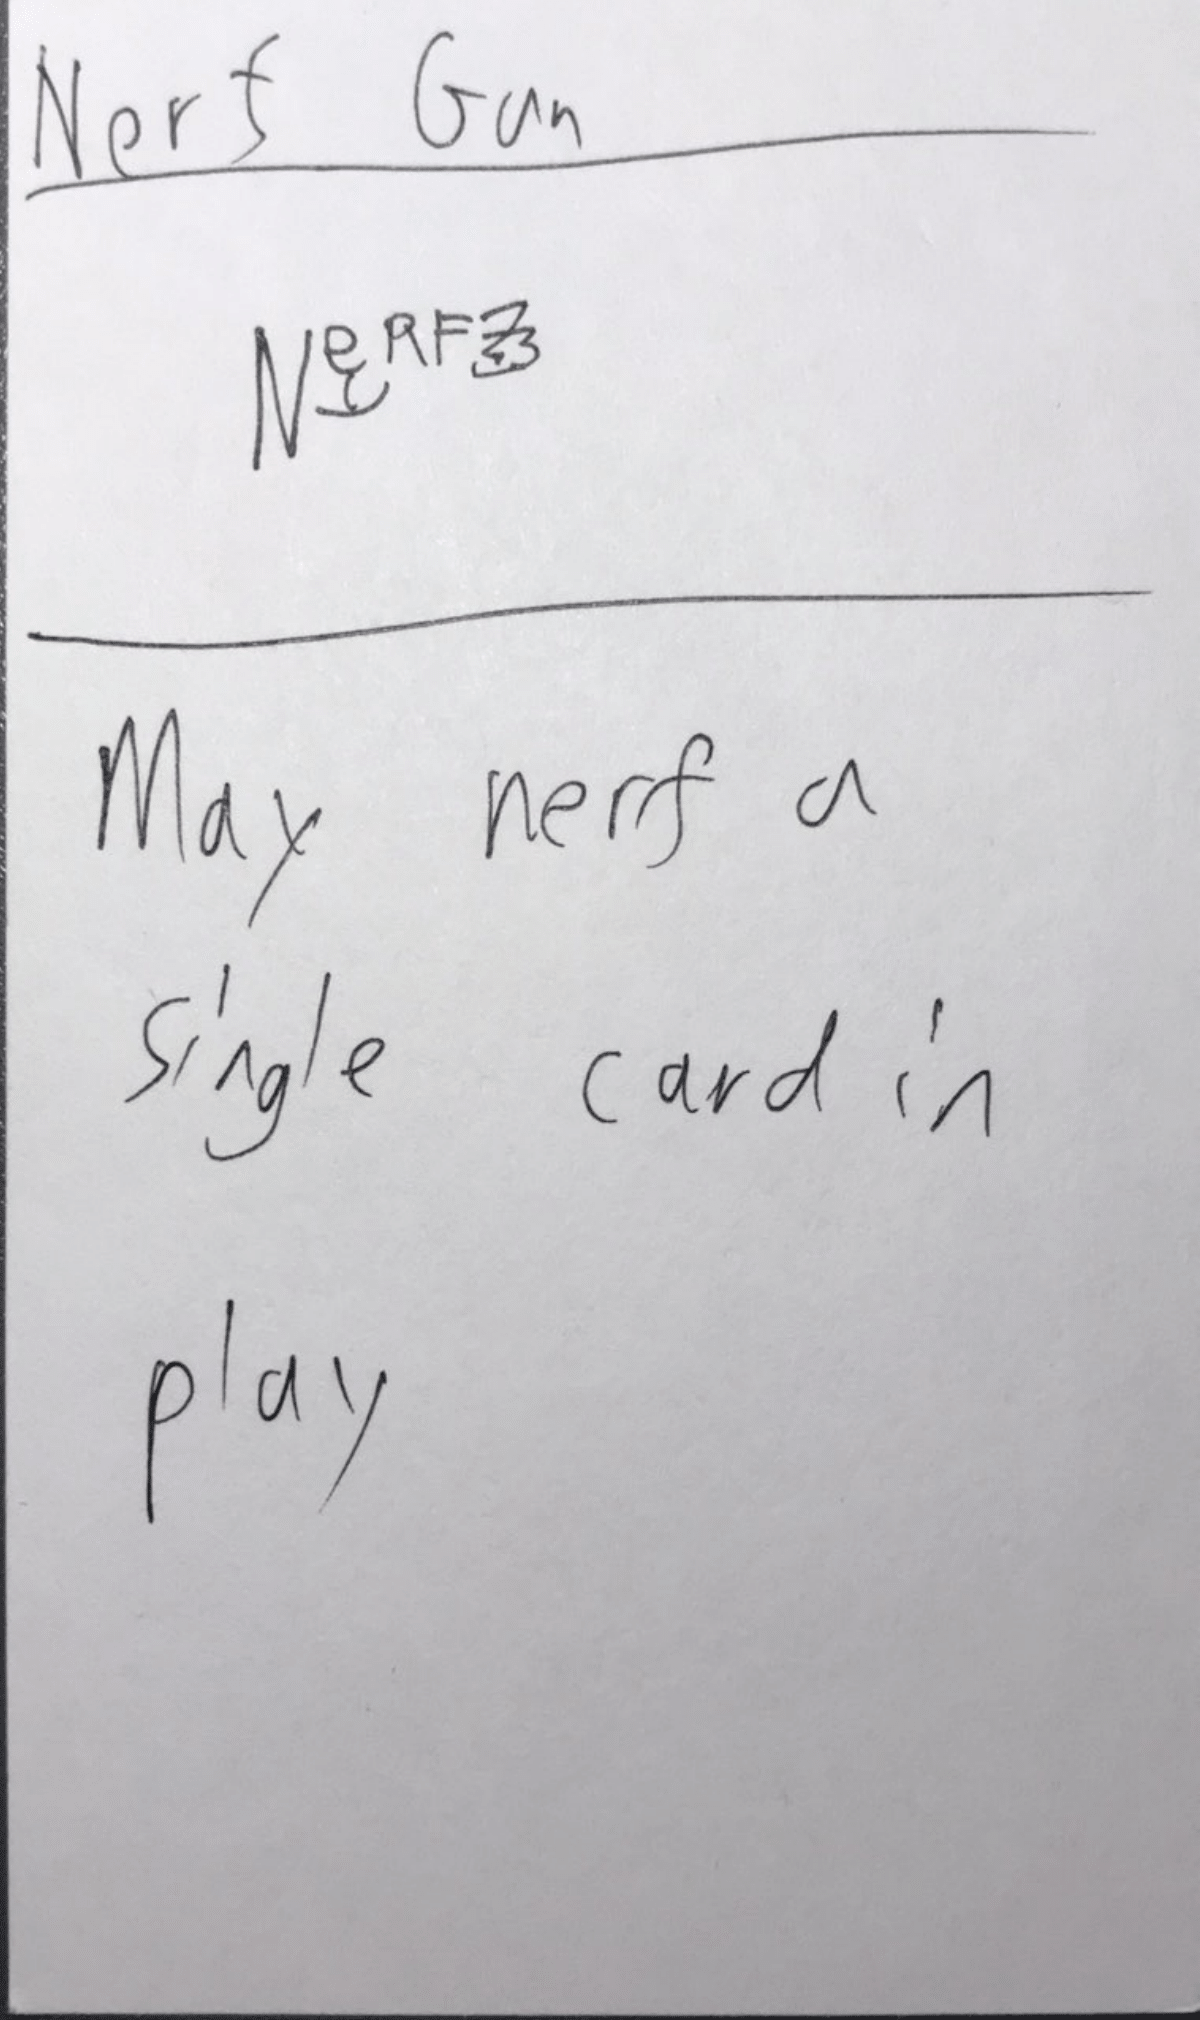 Nerf Gun
NeRF
May nerf a
single card in
play